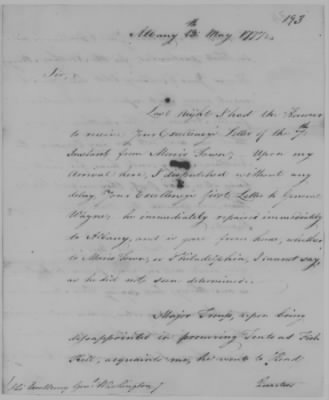 193
Albany 13th May 1777
Sir,
Last Night I had the Honour
to receive Your Excellencys Letter of the 7th
Instant from Morris Town; Upon my
Arrival here, I dispatched without any
delay Your Excellencys first Letter to General
Wayne; he immediately repaired
to Albany, and is gone from hence, whether
to Morris Town, or Philadelphia, I cannot say,
as he did not seem determined.
Major Troup, upon being
disappointed in procuring Tents at Fish
Kill, acquaints me, he went to Head
Quarters
His Excellency Genl. Washington